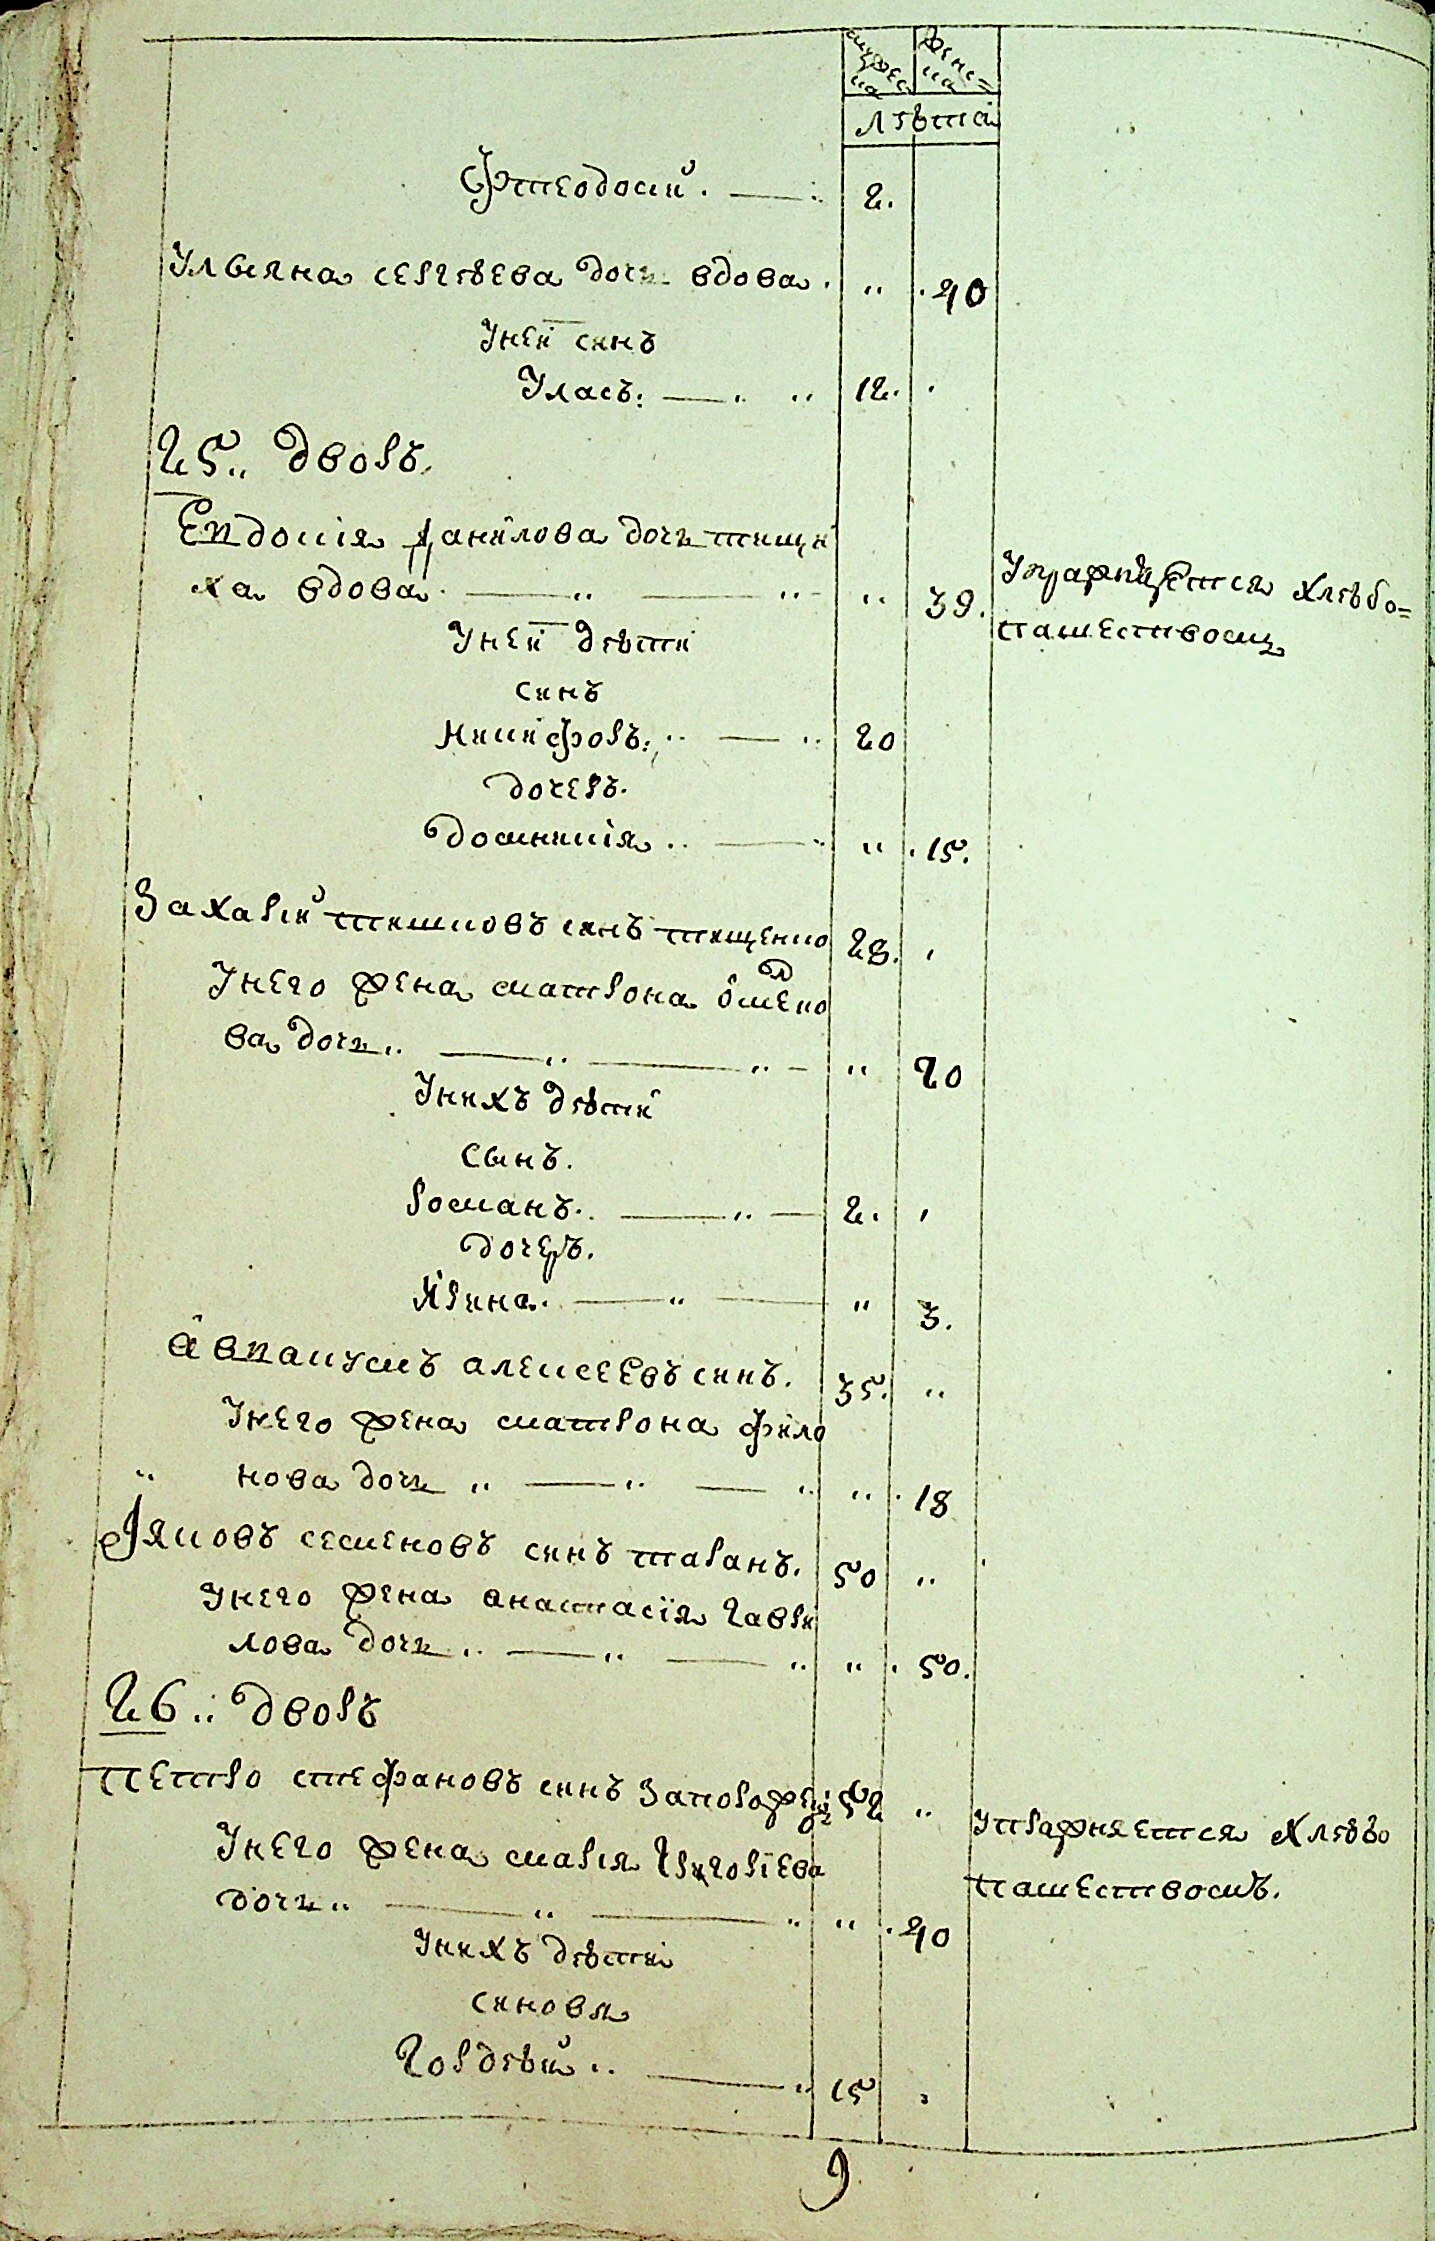 мужеска женска
лѣта
Фтеодосій. 2.
Ульяна сергѣева дочь вдова. 40
Уней синъ
Уласъ: 12.
25 дворъ.
Евдокія Данілова дочь тищи
ха вдова 39. Упражняется хлѣбо=
пашествомъ
Уней дѣти
синъ
Никифоръ: 20
дочеръ.
Домникія 15.
Захарій тишковъ синъ тищенко 28.
Унего жена матрона
ва дочь 20
Унихъ дѣти
Сынъ.
Романъ. 2.
дочеръ.
Ирина. 3.
Авкакумъ алексеевъ синъ. 35.
Унего жена матрона філо
нова дочь 18
Іяковъ семеновъ синъ таранъ. 50
Унего жена анастасія гаври
лова дочь 50.
26 дворъ
петро стефановъ синъ 52 упражняется хлѣбо
Унего жена марія Григоріева пашествомъ.
дочь 40
Унихъ дѣти
синовя
Гордѣй 15
9